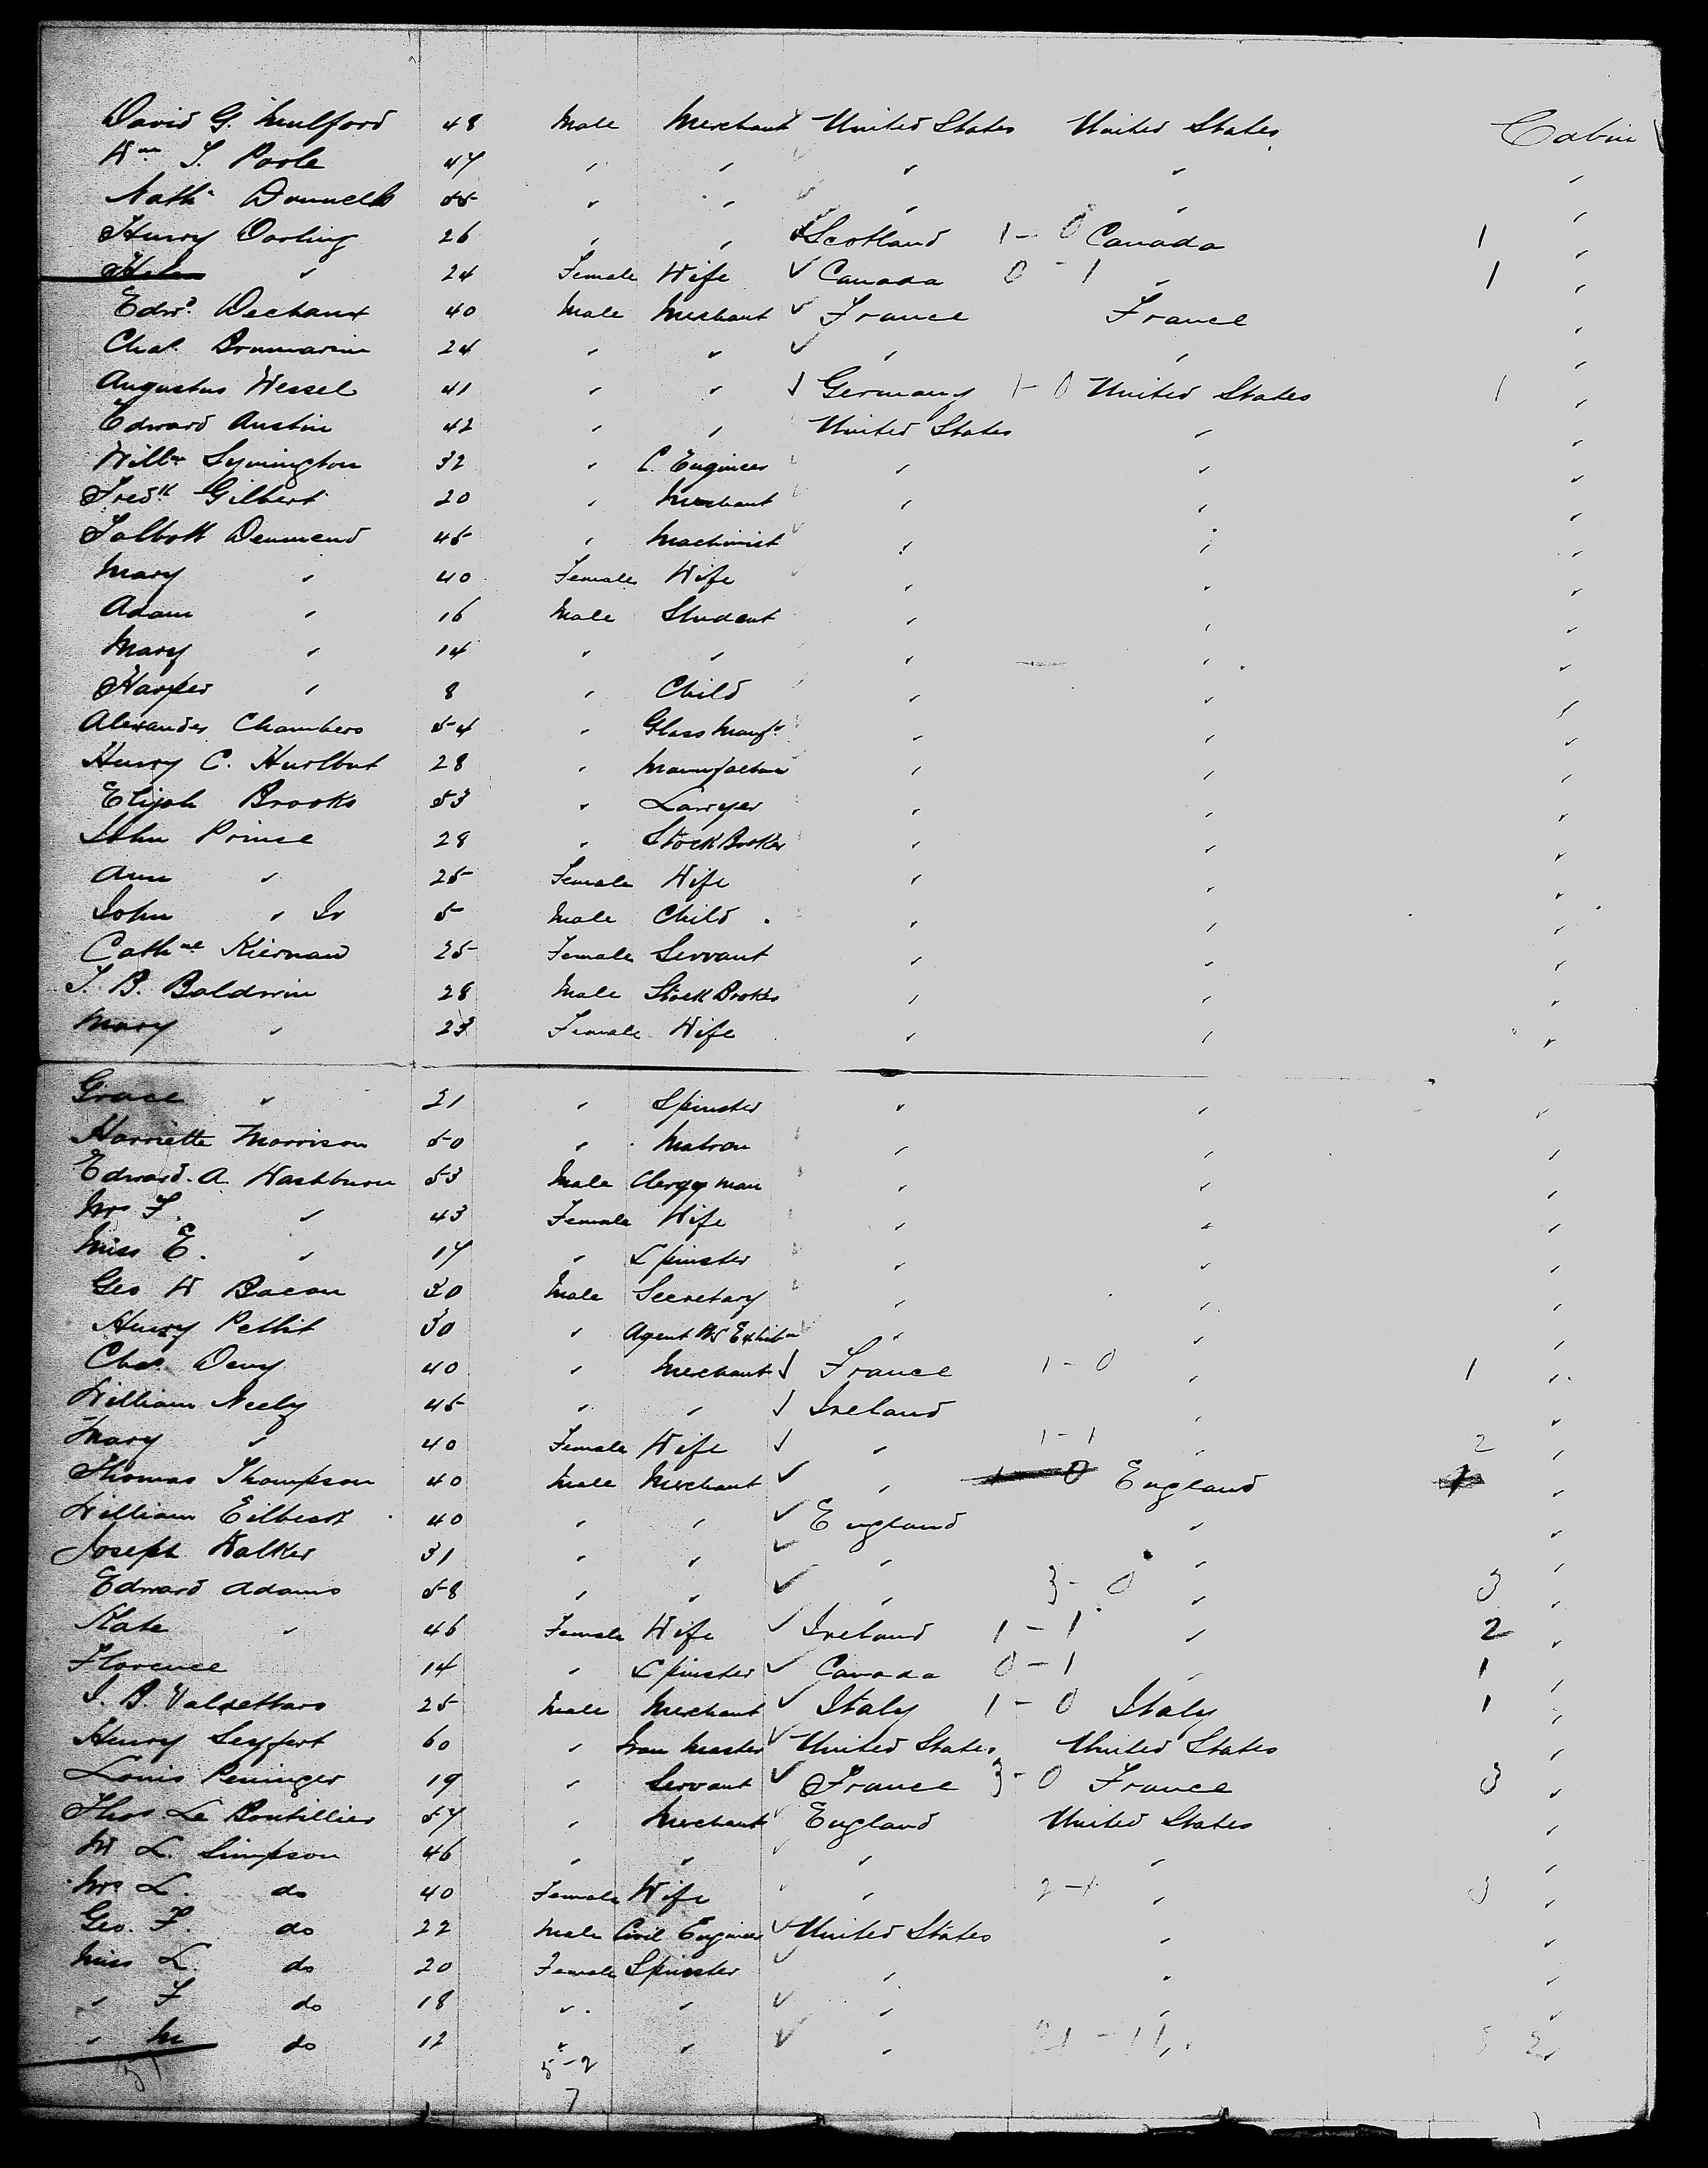 David G. Mulford 48 Male Merchant United States United States Cabin
Wm T. Poole 47 " " " " "
Nathl Donnell 55 " " " " "
Henry Darling 26 " " Scotland 1-0 Canada 1 "
Helen " 24 Female Wife Canada 0-1 " 1 "
Edwd 40 Male Merchant France France "
Chas. 24 " " " " "
Augustus Wessel 41 " " Germany 1-0 United States 1 "
Edward Austin 42 " " United States " "
Willm Symington 32 " C. Engineer " " "
Fredk Gilbert 20 " Merchant " " "
Talbott Denmead 45 " Machinist " " "
Mary " 40 Female Wife " " "
Adam " 16 Male Student " " "
Mary " 14 " " " " "
Harper " 8 " Child " " "
Alexander Chambers 54 " Glass Manfr " " "
Henry C. Hurlbut 28 " Manufacturer " " "
Elijah Brooks 53 " Lawyer " " "
John Prince 28 " Stock Broker " " "
Ann " 25 Female Wife " " "
John " Jr 5 Male Child " " "
Cathne Kiernan 25 Female Servant " " "
T. B. Baldwin 28 Male Stock Broker " " "
Mary " 23 Female Wife " " "
Grace " 21 " Spinster " " "
Harriette Morrison 50 " Matron " " "
Edward A. Washburn 53 Male Clergyman " " "
Mrs F. " 43 Female Wife " " "
Miss E. " 17 " Spinster " " "
Geo W Bacon 30 Male Secretary " " "
Henry Pettit 30 " Agent US Exhibn " " "
Chas. Davy 40 " Merchant France 1-0 " 1 "
William Neely 45 " " Ireland " "
Mary " 40 Female Wife " 1-1 " 2 "
Thomas Thompson 40 Male Merchant " England "
William 40 " " England " "
Joseph Walker 31 " " " " "
Edward Adams 58 " " " 3-0 " 3 "
Kate " 46 Female Wife Ireland 1-1 " 2 "
Florence 14 " Spinster Canada 0-1 " 1 "
25 Male Merchant Italy 1-0 Italy 1 "
Henry Seyfert 60 " Iron Master United States United States "
Louis Peninger 19 " Servant France 3-0 France 3 "
Thos. Le Boutillier 57 " Merchant England United States "
W L. Simpson 46 " " " " "
Mrs L. do 40 Female Wife " 2-1 " 3 "
Geo. F. do 22 Male Civil Engineer United States " "
Miss L. do 20 Female Spinster " " "
" F do 18 " " " " "
" M do 12 " " " 21-11 "
51 5-2
7